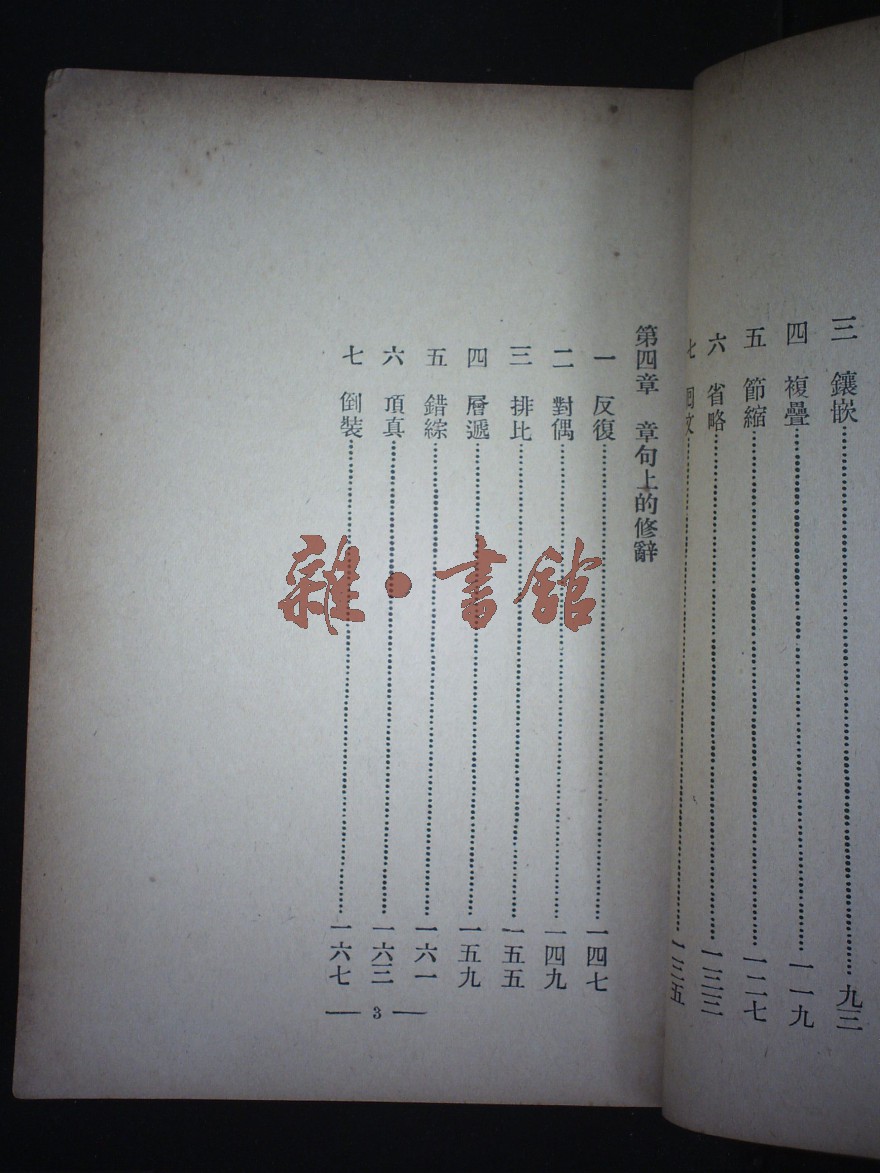 三　鑲嵌……九三
四　複疊……一一九
五　節縮……一二七
六　省略……一三三
七　回文……一三五
第四章　章句上的修辭
一　反復……一四七
二　對偶……一四九
三　排比……一五五
四　層遞……一五九
五　錯綜……一六一
六　頂真……一六三
七　倒裝……一六七
— 3 —
雜·書館